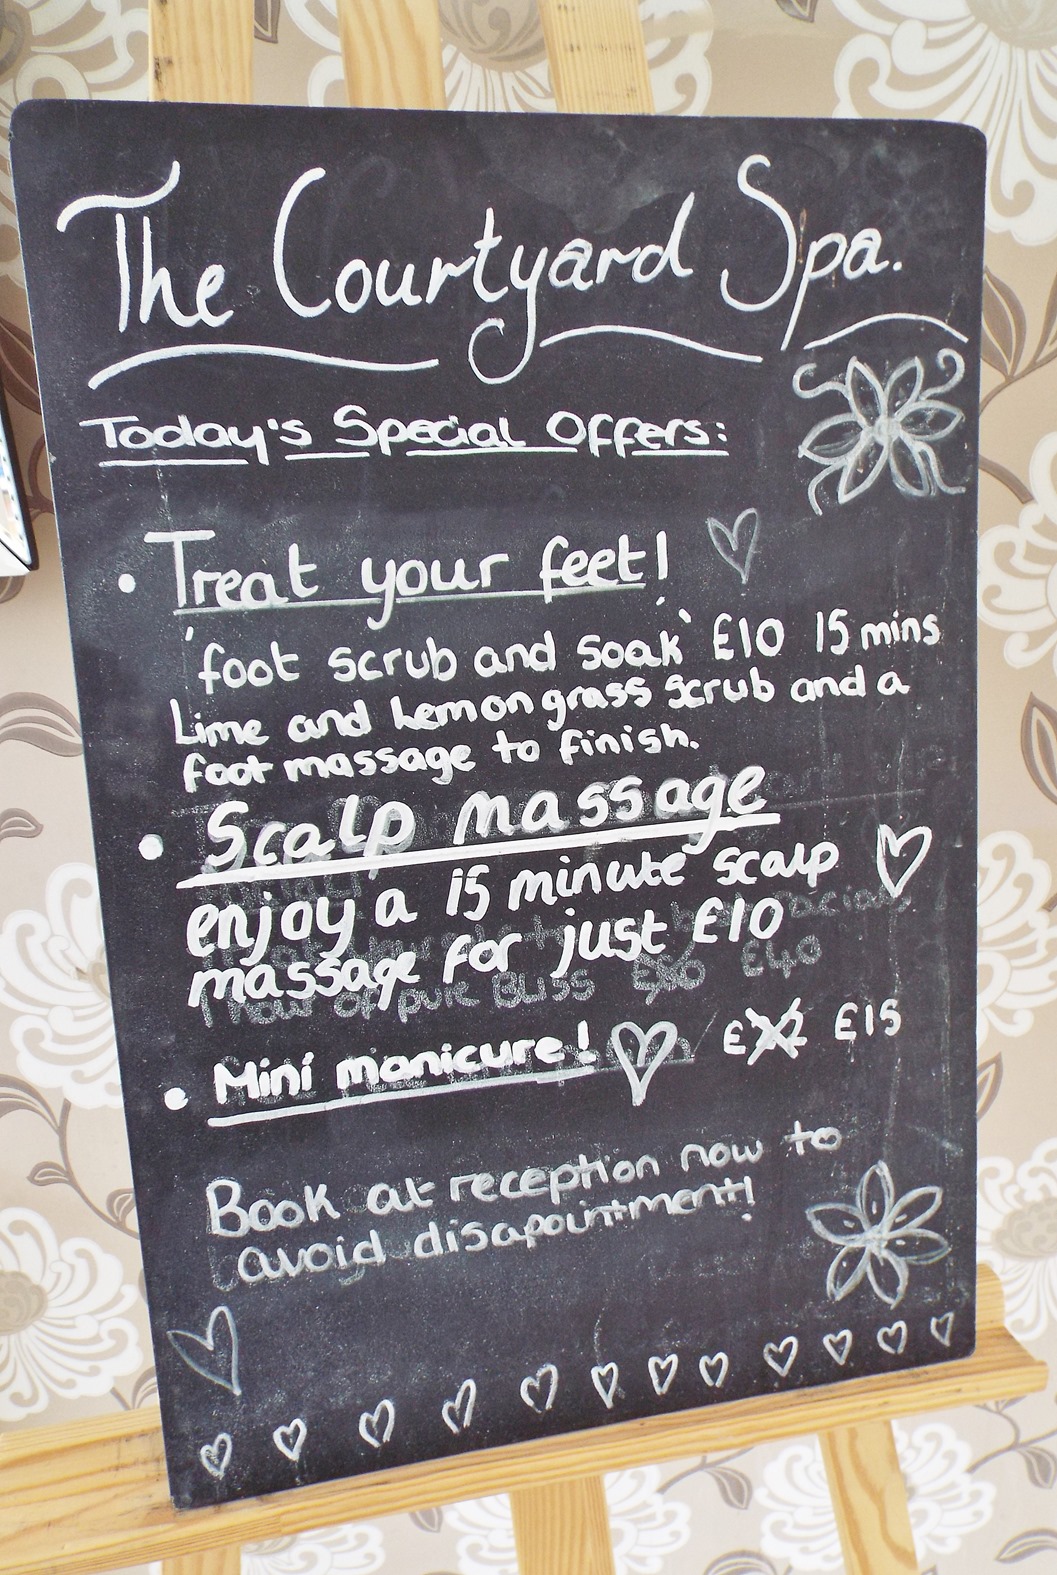 The Courtyard Spa.
Today's Special Offers:
• Treat your feet!
'foot scrub and soak' £10 15 mins
Lime and Lemongrass scrub and a
foot massage to finish.
• Scalp massage
enjoy a 15 minute scalp
massage for just £10
1 hour of pure Bliss £50 £40
• Mini manicure! £22 £15
Book at reception now to
avoid disapointment!